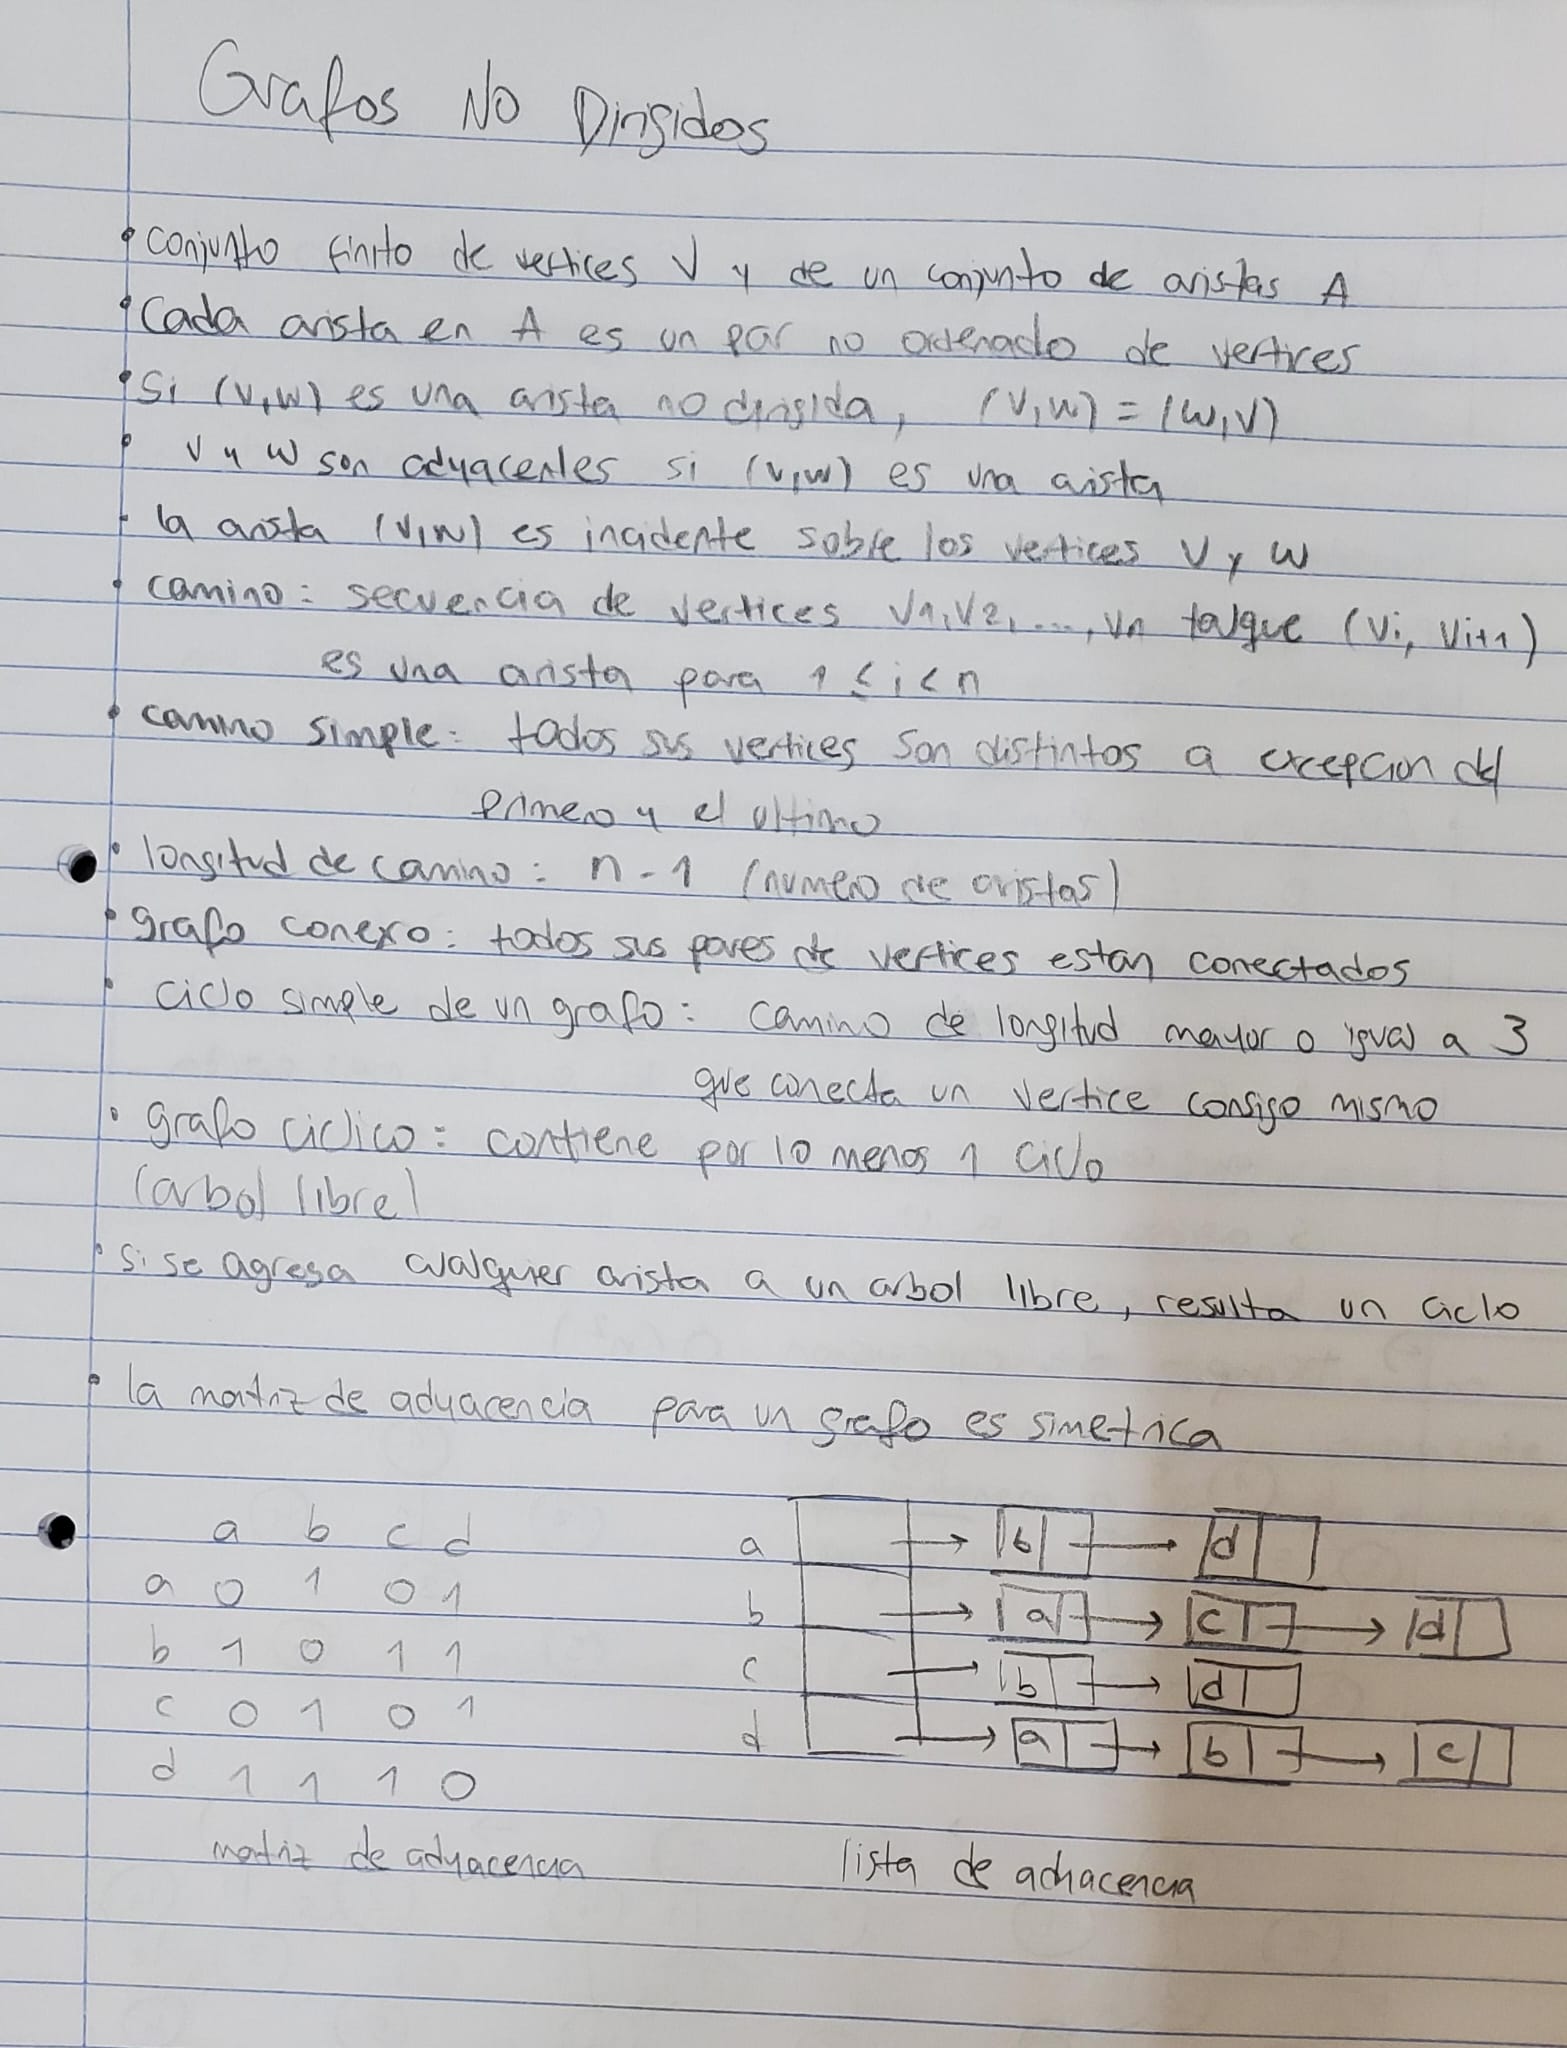 Grafos No Dirigidos
• conjunto finito de vertices V y de un conjunto de aristas A
• Cada arista en A es un par no ordenado de vertices
• Si (v,w) es una arista no dirigida, (v,w) = (w,v)
• v y w son adyacentes si (v,w) es una arista
• la arista (v,w) es incidente sobre los vertices v y w
• camino: secuencia de vertices v1,v2,...,vn tal que (vi, vi+1)
es una arista para 1 ≤ i < n
• camino simple: todos sus vertices son distintos a excepcion del
primero y el ultimo
• longitud de camino: n-1 (numero de aristas)
• grafo conexo: todos sus pares de vertices estan conectados
• ciclo simple de un grafo: camino de longitud mayor o igual a 3
que conecta un vertice consigo mismo
• grafo ciclico: contiene por lo menos 1 ciclo
(arbol libre)
• si se agrega cualquier arista a un arbol libre, resulta un ciclo
• la matriz de adyacencia para un grafo es simetrica
a b c d
a 0 1 0 1
b 1 0 1 1
c 0 1 0 1
d 1 1 1 0
matriz de adyacencia
a → b → d
b → a → c → d
c → b → d
d → a → b → c
lista de adyacencia